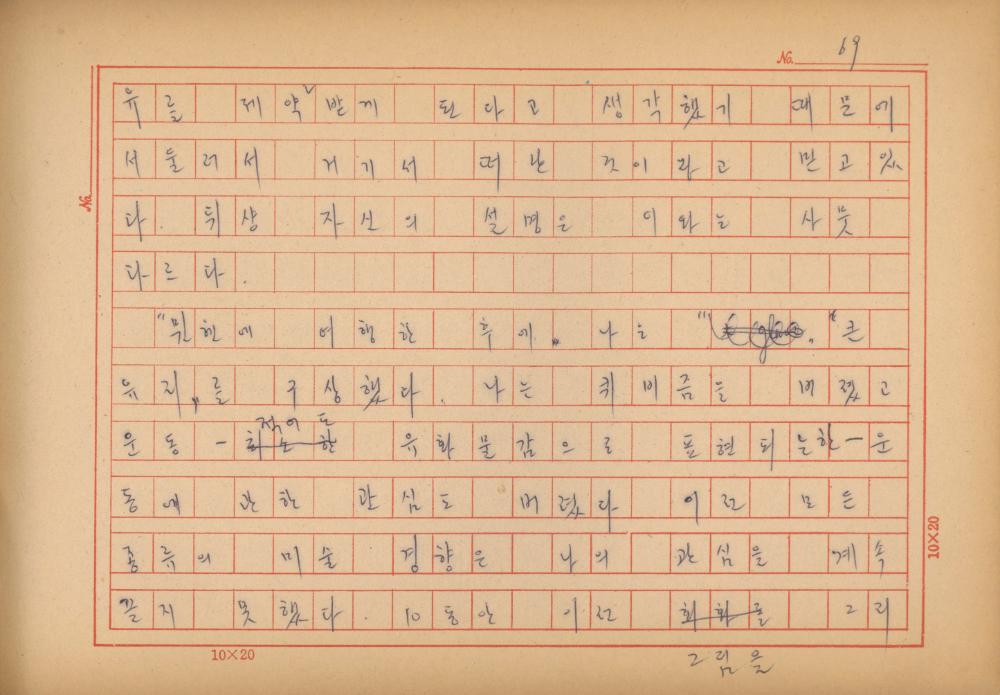 No. 69
유를 제약받게 된다고 생각했기 때문에
서둘러서 거기서 떠난 것이라고 믿고 있
다. 뒤샹 자신의 설명은 이와는 사뭇
다르다.
"뮌헨에 여행한 후에" 나는 " " 큰
유리"를 구상했다. 나는 퀴비즘을 버렸고
적어도
운동-최소한 유화물감으로 표현되는한-운
동에 관한 관심도 버렸다 이런 모든
종류의 미술 경향은 나의 관심을 계속
끌지 못했다. 10동안 이런 회화를 그리
그림을
No.
10×20
10×20